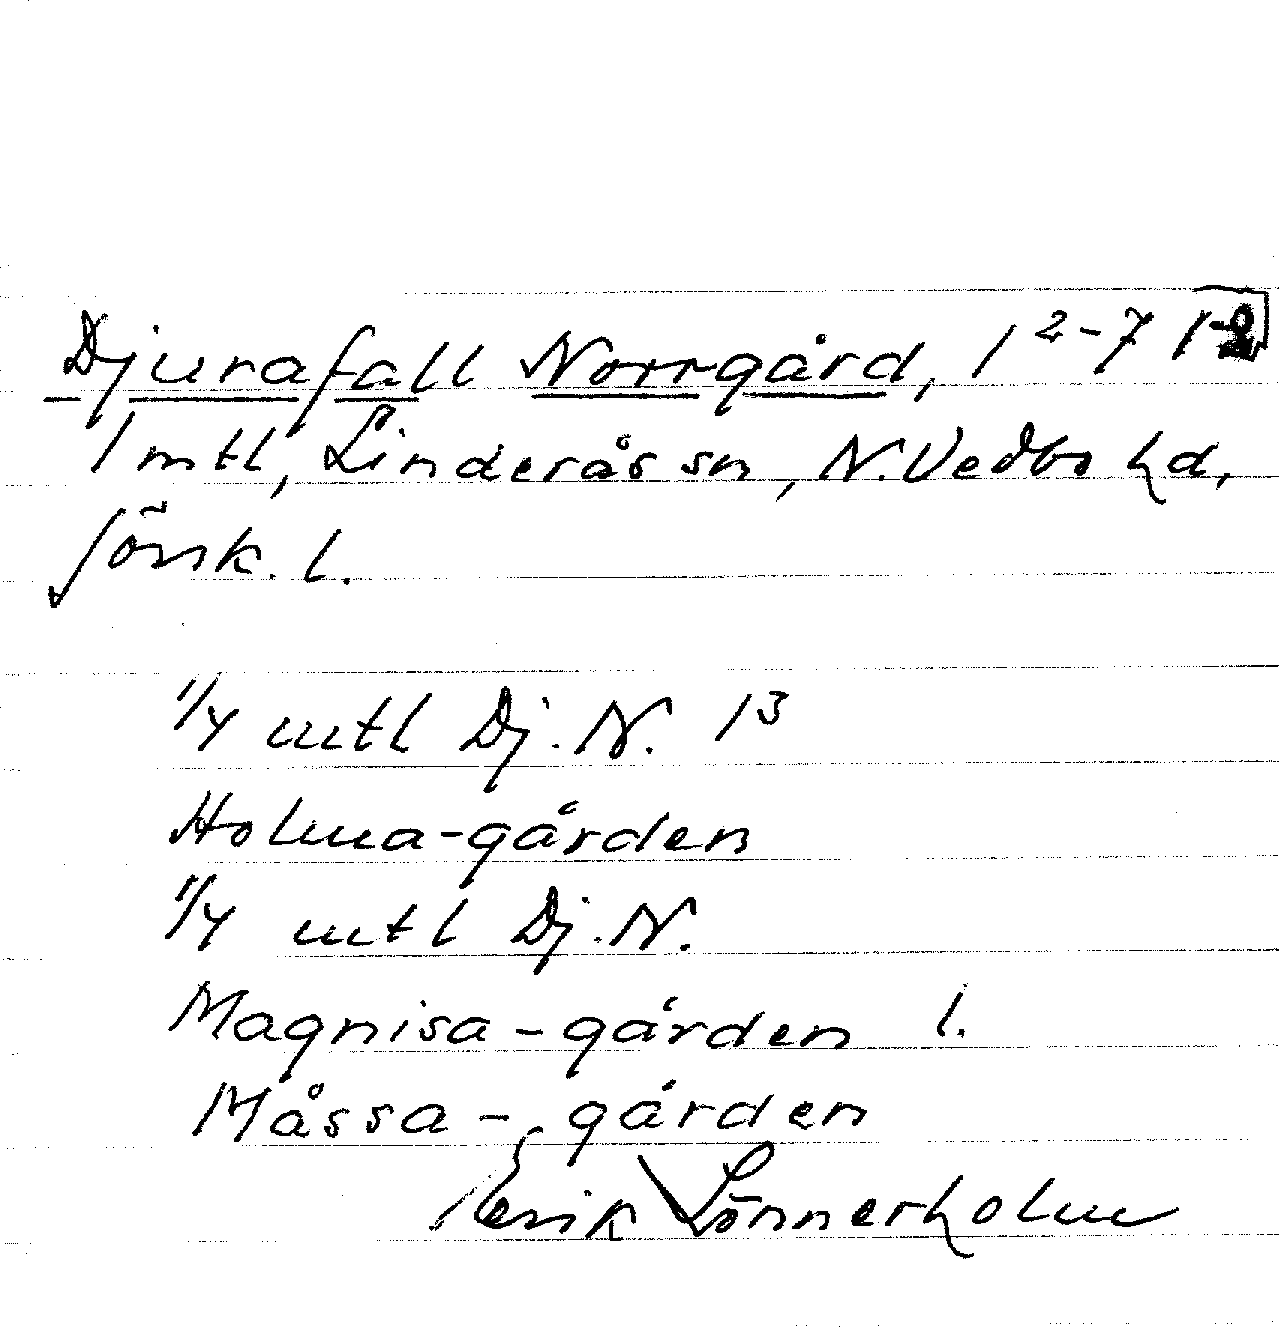 Djurafall Norrgård, 1²⁻⁷
1 mtl, Linderås sn, N. Vedbo hd,
Jönk. l.
1/4 mtl Dj. N. 1³
Holma-gården
1/4 mtl Dj. N.
Magnisa-gården l.
Måssa-gården
Erik Lönnerholm